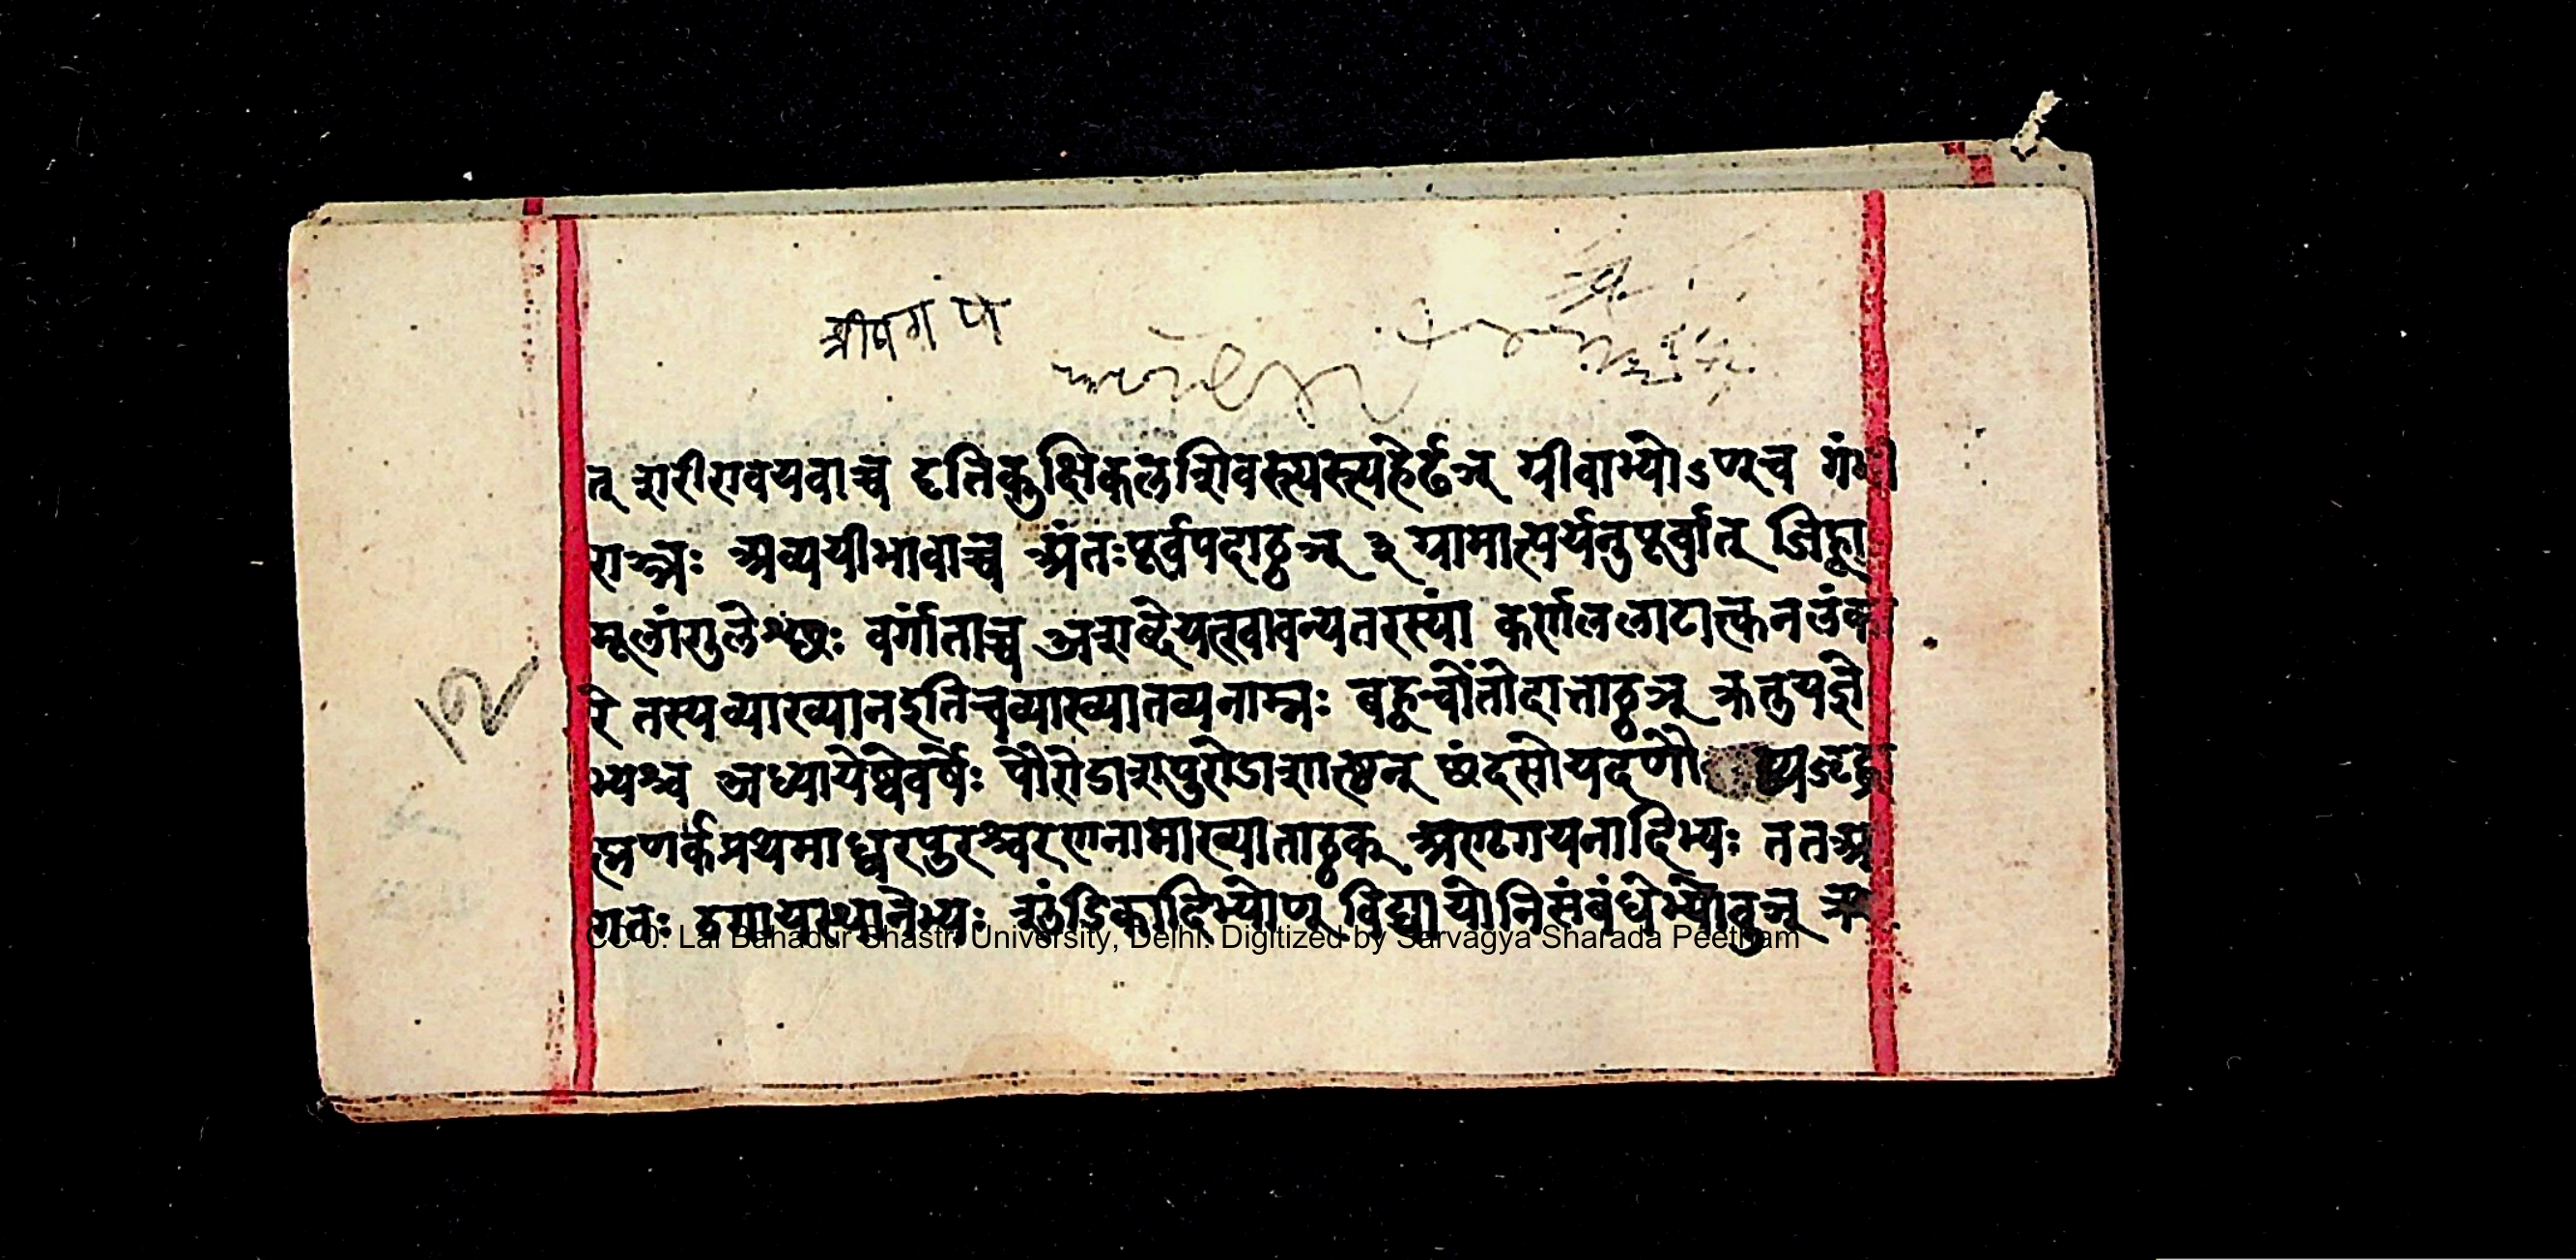 श्रीषगं पा
त् शरीरावयवाच्च दृतिकुक्षिकलशिवस्त्यस्त्यहेर्ढञ् ग्रीवाभ्योऽण्च गंभी
राञ्ञः अव्ययीभावाच्च अंतःपूर्वपदाट्ठञ् ३ ग्रामात्पर्यनुपूर्वात् जिह्वा
मूलांगुलेश्छः वर्गांताच्च अशब्देयत्खावन्यतरस्यां कर्णललाटात्कनलंका
रे तस्यव्याख्यानइतिचव्याख्यातव्यनाम्नः बह्वचोंतोदात्ताट्ठञ् क्रतुयज्ञे
भ्यश्च अध्यायेष्वेवर्षेः पौरोडाशपुरोडाशात्ष्ठन् छंदसोयदणौ द्व्यजृद्ब्रा
ह्मणर्क्प्रथमाध्वरपुरश्चरणनामाख्याताट्ठक् अणृगयनादिभ्यः ततआ
गतः ठगायस्थानेभ्यः शुंडिकादिभ्योण् विद्यायोनिसंबंधेभ्योवुञ्
CC-0. Lal Bahadur Shastri University, Delhi. Digitized by Sarvagya Sharada Peetham
१२